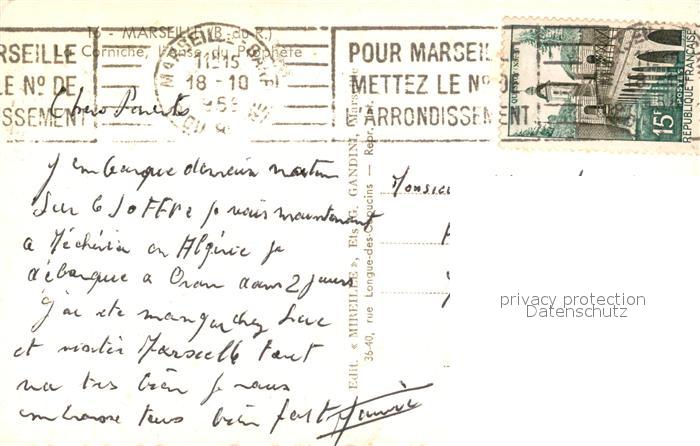 16 - MARSEILLE (B.-du-R.)
La Corniche, l'Anse du Prophète
MARSEILLE GARE
11H15
18-10
POUR MARSEILLE
METTEZ LE No DE
L'ARRONDISSEMENT
MARSEILLE
LE No DE
ISSEMENT
QUIMPER
15F
POSTES
REPUBLIQUE FRANÇAISE
Chers Parents
J'embarque demain matin
Sur le JOFFRE je vais maintenant
a Méchéria en Algérie je
débarque a Oran dans 2 jours
J'ai ete manger chez Luc
et visiter Marseille tout
va tres bien je vous
embrasse tous bien fort
Edit. « MIREILLE », Ets G. GANDINI, Marseille
36-40, rue Longue-des-Capucins — Repr. Int.
Monsieur
privacy protection
Datenschutz